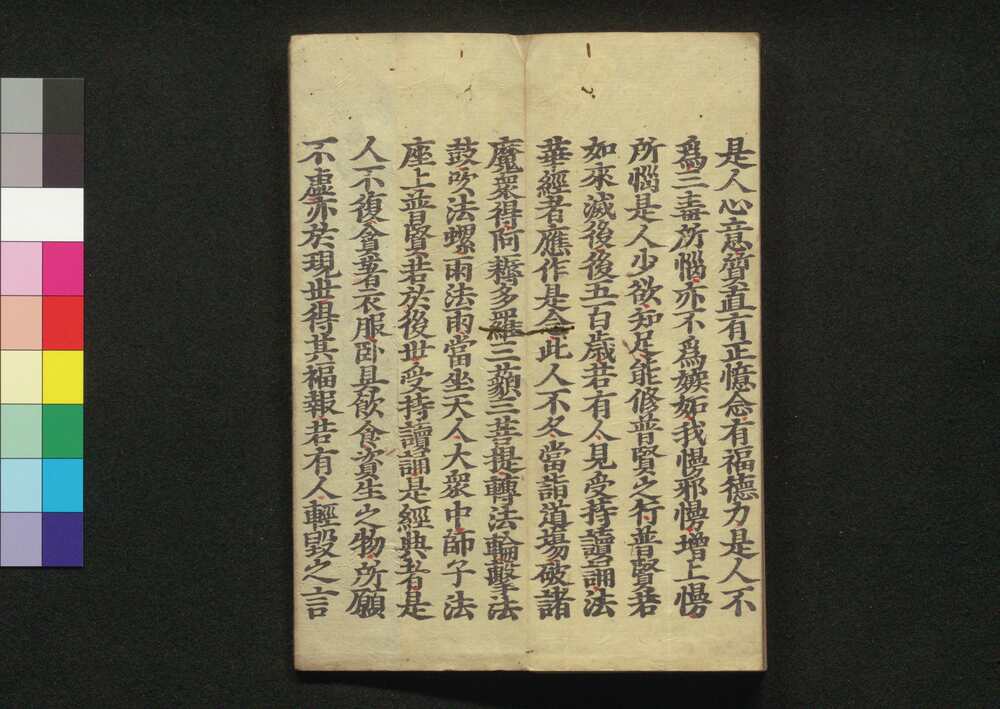 是人心意質直有正憶念有福德力是人不
爲三毒所惱亦不爲嫉妬我慢邪慢增上慢
所惱是人少欲知足能修普賢之行普賢若
如來滅後後五百歲若有人見受持讀誦法
華經者應作是念此人不久當詣道場破諸
魔衆得阿耨多羅三藐三菩提轉法輪擊法
鼓吹法螺雨法雨當坐天人大衆中師子法
座上普賢若於後世受持讀誦是經典者是
人不復貪著衣服卧具飲食資生之物所願
不虛亦於現世得其福報若有人輕毀之言